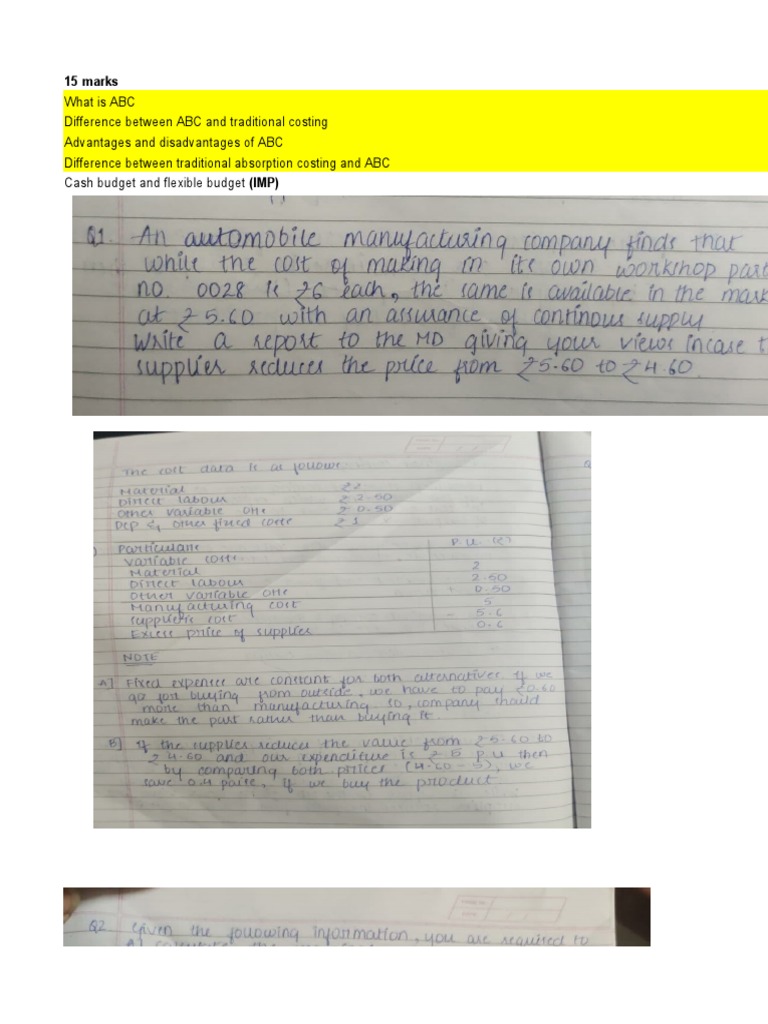 15 marks
What is ABC
Difference between ABC and traditional costing
Advantages and disadvantages of ABC
Difference between traditional absorption costing and ABC
Cash budget and flexible budget (IMP)
Q1. An automobile manufacturing company finds that
while the cost of making in its own workshop part
no. 0028 is ₹6 each, the same is available in the mark
at ₹5.60 with an assurance of continous supply
Write a report to the MD giving your views incase t
supplier reduces the price from ₹5.60 to ₹4.60.
The cost data is as follows
Material ₹2
Direct labour ₹2.50
Other variable OHs ₹0.50
Dep & other fixed costs ₹1
Particulars P.U. (₹)
Variable costs
Material 2
Direct labour 2.50
Other variable OHs + 0.50
Manufacturing cost 5
Supplier's cost - 5.6
Excess price of supplier 0.6
NOTE
A] Fixed expenses are constant for both alternatives if we
go for buying from outside, we have to pay ₹0.60
more than manufacturing so, company should
make the part rather than buying it.
B] If the supplier reduces the value from ₹5.60 to
₹4.60 and our expenditure is ₹5 p.u then
by comparing both prices (4.60 - 5), we
save 0.4 paise, if we buy the product
Q2 Given the following information, you are required to
A]